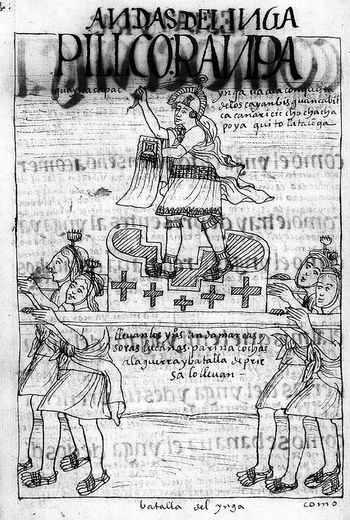 ANDAS DEL INGA
PILLCORANPA
guayna capac
ynga ua a la conquista
de los cayanbis guancabil
ca canari cicho chacha
poya quito latacõga
lleuan los yns andamarcas y
soras lucanas parinacochas
a la guerra y batalla de prie
sa lo lleuan
batalla del ynga
como